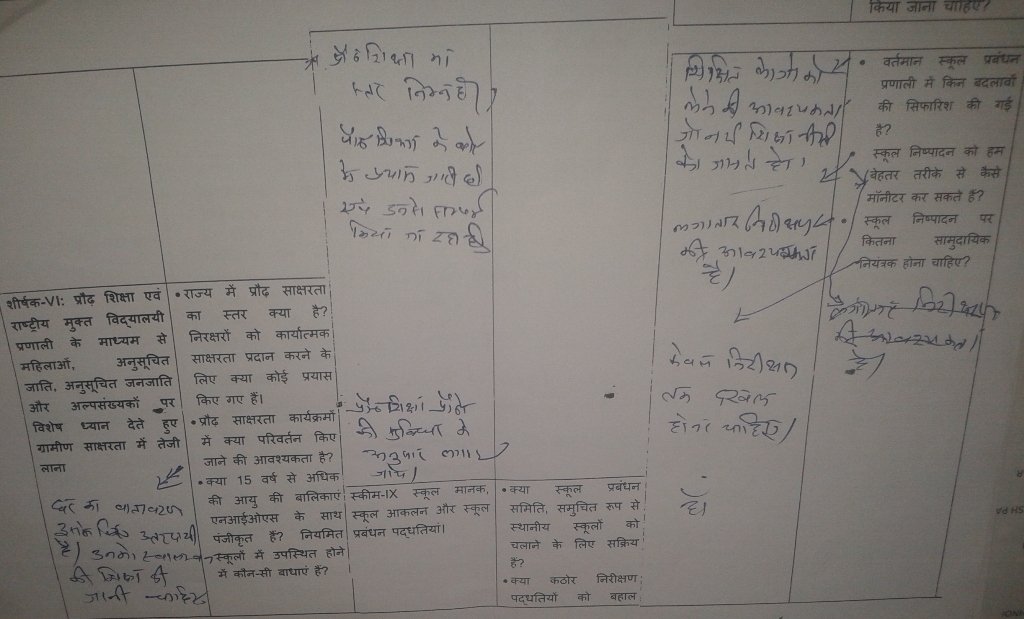 किया जाना चाहिए?
प्रौढ शिक्षा का
स्तर निम्न है।
प्रौढ शिक्षा के
के प्रयास जारी है।
एवं उनसे सम्पर्क
किया जा रहा है।
शिक्षित लोगो को
लेने की आवश्यकता
जो नई शिक्षा नीति
को जानते हो।
लगातार निरीक्षण
की आवश्यकता
है।
केवल निरीक्षण
तक दखल
होना चाहिए।
हाँ
• वर्तमान स्कूल प्रबंधन
प्रणाली में किन बदलावों
की सिफारिश की गई
है?
• स्कूल निष्पादन को हम
बेहतर तरीके से कैसे
मॉनीटर कर सकते है?
• स्कूल निष्पादन पर
कितना सामुदायिक
नियंत्रक होना चाहिए?
लगातार निरीक्षण
की आवश्यकता
है।
शीर्षक-VI: प्रौढ़ शिक्षा एवं
राष्ट्रीय मुक्त विद्यालयी
प्रणाली के माध्यम से
महिलाओं, अनुसूचित
जाति, अनुसूचित जनजाति
और अल्पसंख्यकों पर
विशेष ध्यान देते हुए
ग्रामीण साक्षरता में तेजी
लाना
घर का वातावरण
उनके लिए उत्तरदायी
है। उनको
की शिक्षा दी
जानी चाहिए
• राज्य में प्रौढ़ साक्षरता
का स्तर क्या है?
निरक्षरों को कार्यात्मक
साक्षरता प्रदान करने के
लिए क्या कोई प्रयास
किए गए हैं।
• प्रौढ़ साक्षरता कार्यक्रमों
में क्या परिवर्तन किए
जाने की आवश्यकता है?
• क्या 15 वर्ष से अधिक
की आयु की बालिकाएं
एनआईओएस के साथ
पंजीकृत हैं? नियमित
स्कूलों में उपस्थित होने
में कौन-सी बाधाएं हैं?
प्रौढ शिक्षा प्रौढो
की सुविधा के
अनुसार लगाई
जाये।
स्कीम-IX स्कूल मानक,
स्कूल आकलन और स्कूल
प्रबंधन पद्धतियां।
• क्या स्कूल प्रबंधन
समिति, समुचित रूप से
स्थानीय स्कूलों को
चलाने के लिए सक्रिय
हैं?
• क्या कठोर निरीक्षण
पद्धतियों को बहाल